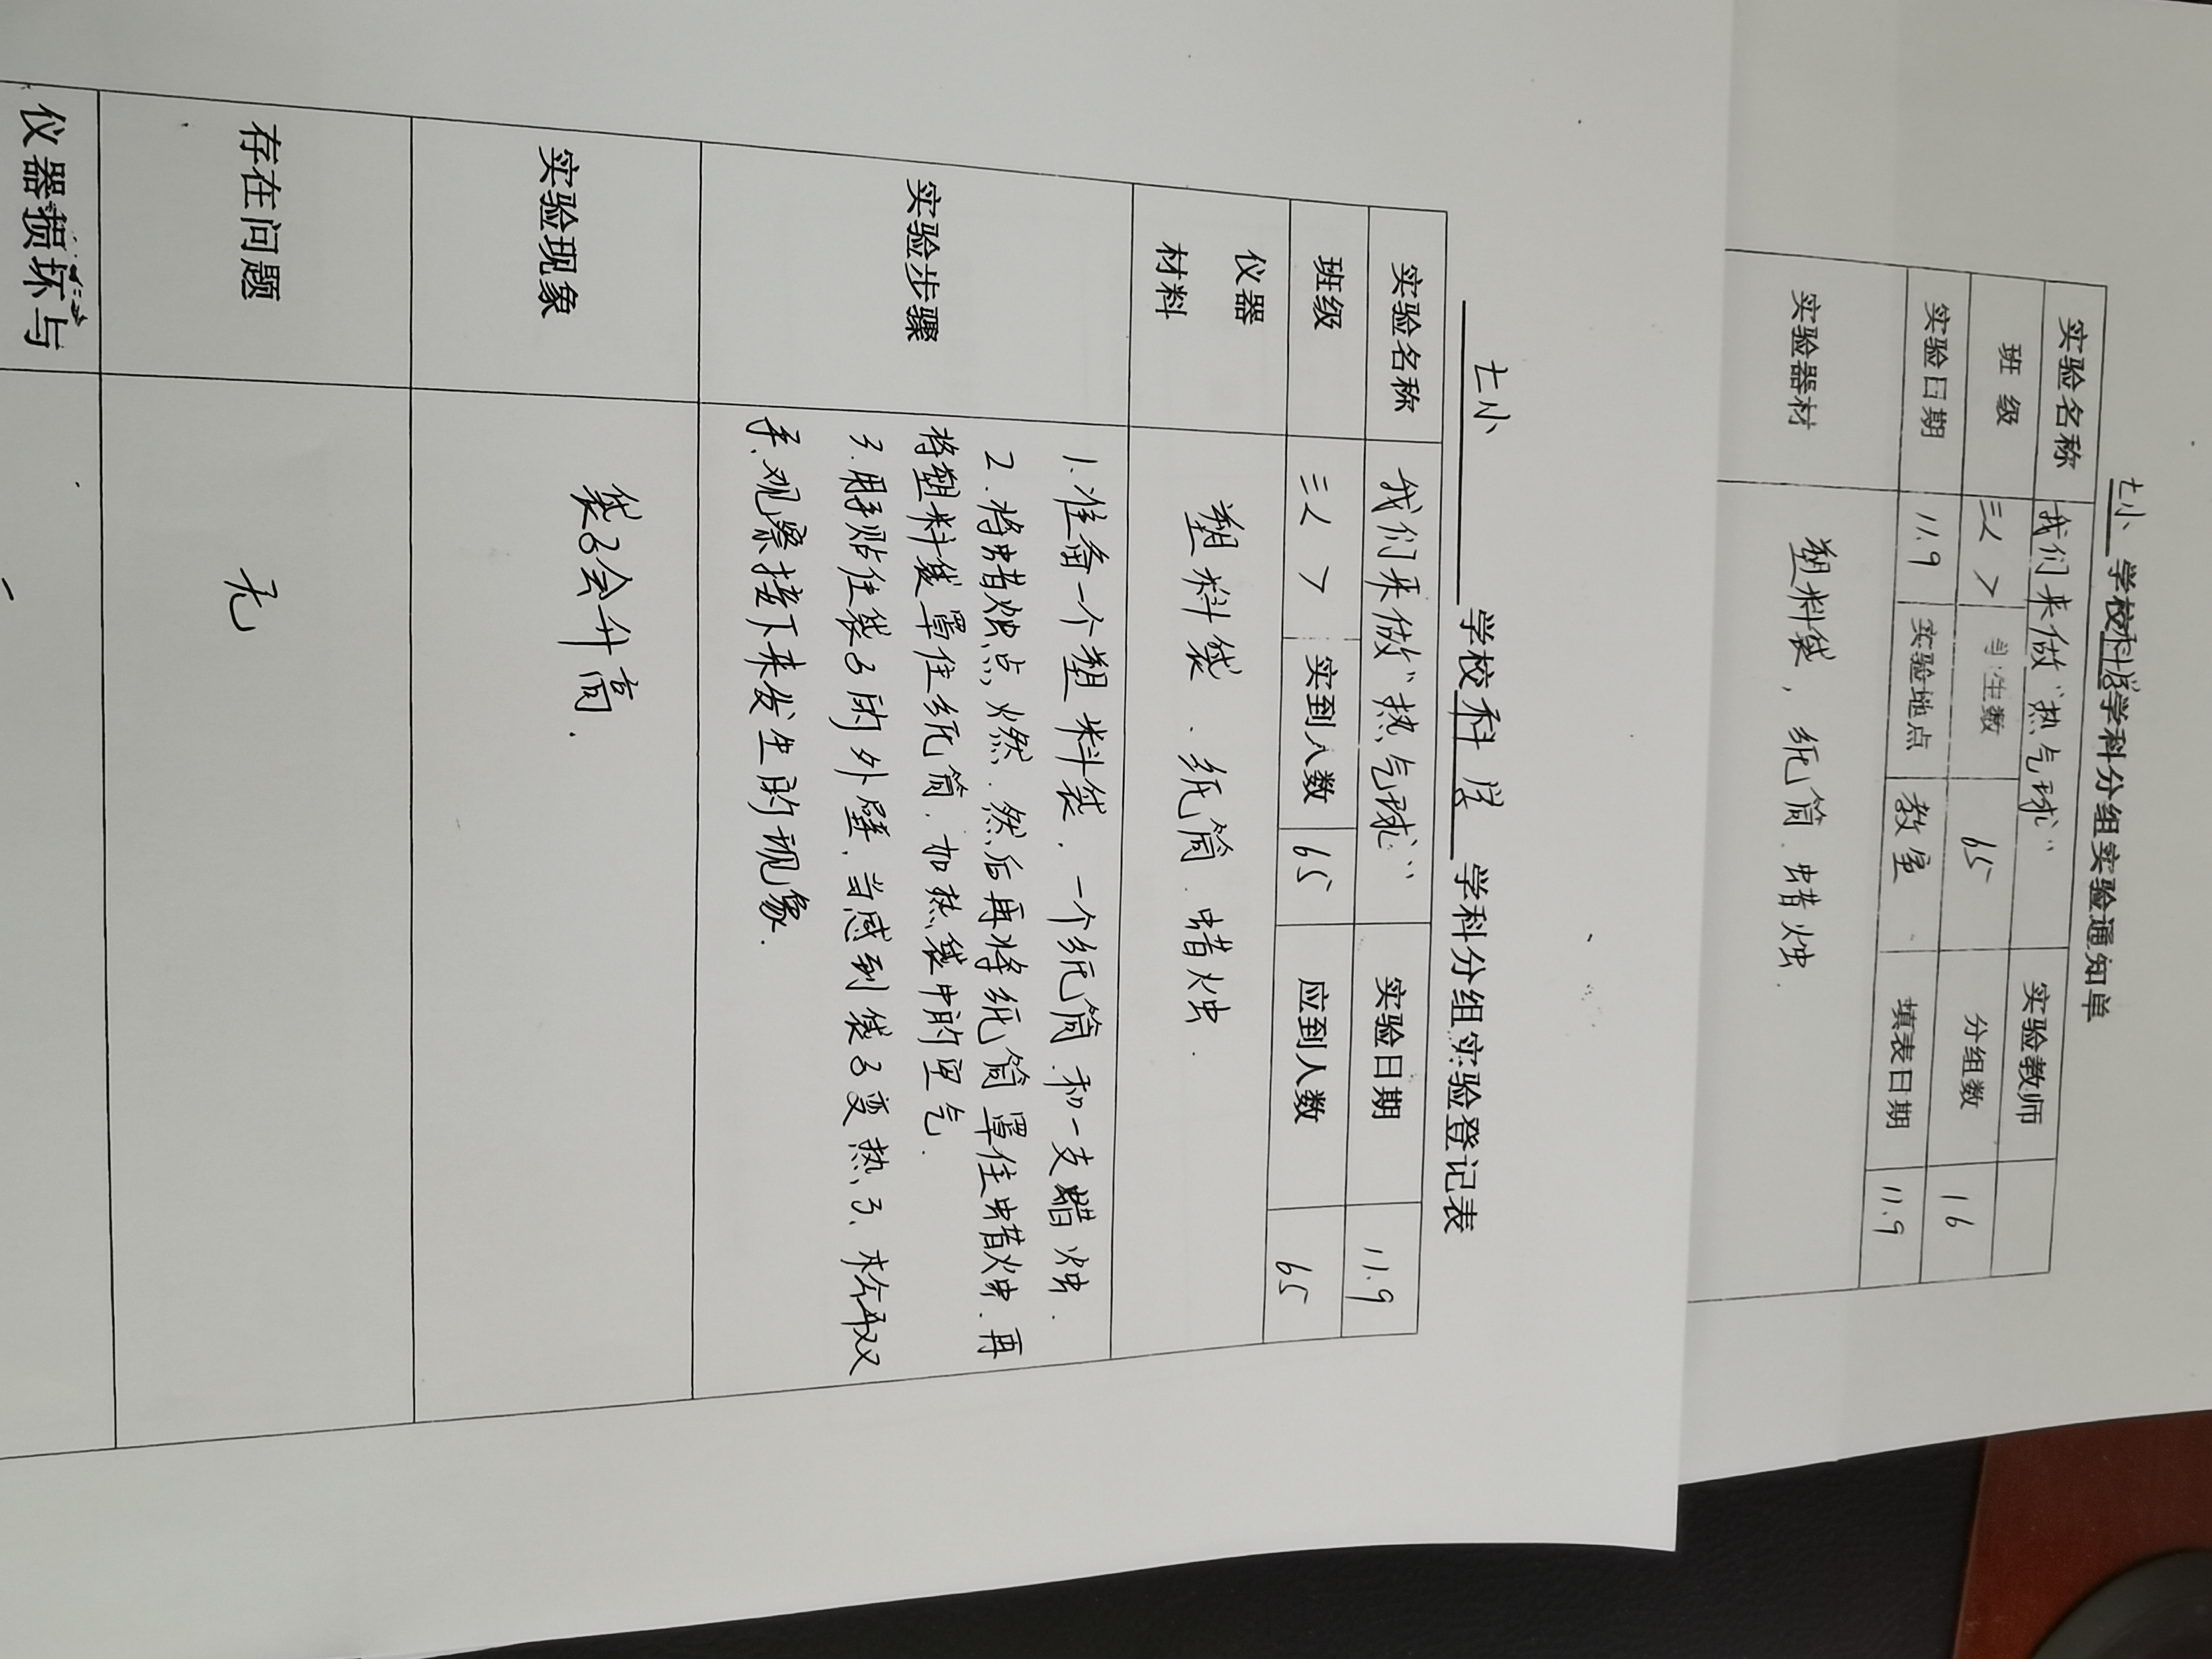 七小 学校科学学科分组实验通知单
实验名称 我们来做“热气球” 实验教师
班 级 三 学生数 65 分组数 16
实验日期 11.9 实验地点 教室 填表日期 11.9
实验器材 塑料袋,纸筒、蜡烛.
七小 学校 科学 学科分组实验登记表
实验名称 我们来做“热气球” 实验日期 11.9
班级 三 实到人数 65 应到人数 65
仪器
材料 塑料袋、纸筒、蜡烛.
实验步骤
1.准备一个塑料袋.一个纸筒和一支蜡烛.
2.将蜡烛点燃.然后再将纸筒罩住蜡烛.再
将塑料袋罩住纸筒.加热袋中的空气.
3.用手贴住袋子的外壁.当感到袋子变热了.松
手.观察接下来发生的现象.
实验现象 袋子会升高.
存在问题 无
仪器损坏与